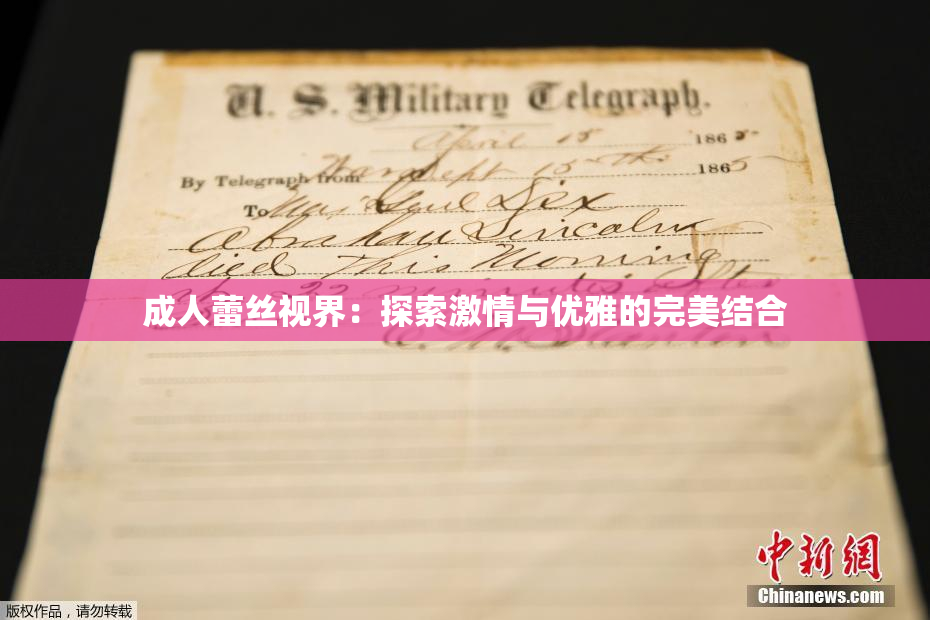 U. S. Military Telegraph.
April 15 1865
By Telegraph from War Dept 15 1865
To Maj Genl Dix
Abraham Lincoln
died This Morning
at 22 minutes after
成人蕾丝视界：探索激情与优雅的完美结合
E. M. Stanton
中新網
Chinanews.com
版权作品，请勿转载